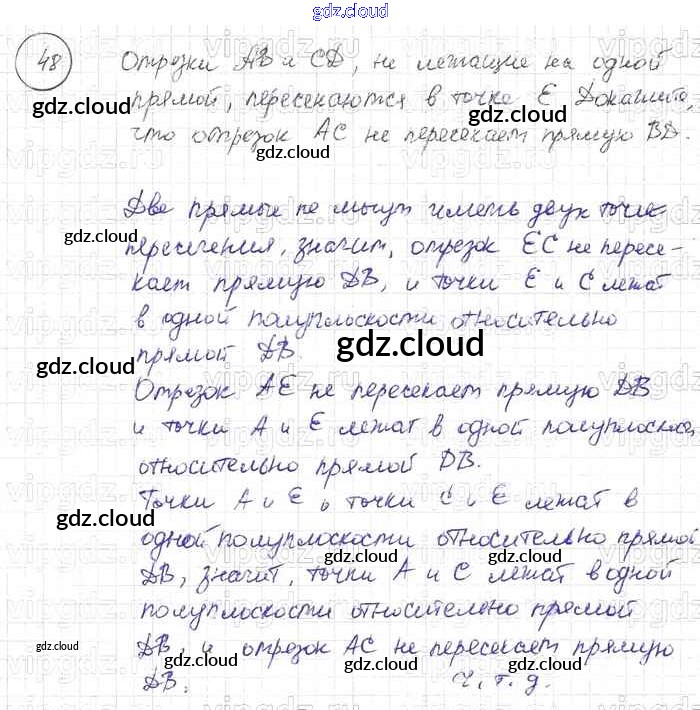 gdz.cloud
48 Отрезки AB и CD, не лежащие на одной
gdz.cloud прямой, пересекаются в точке E Докажите gdz.cloud
что отрезок AC не пересекает прямую BD.
gdz.cloud
Две прямые не могут иметь двух точек
gdz.cloud gdz.cloud
пересечения, значит, отрезок EC не пересе-
кает прямую DB, и точки E и C лежат
в одной полуплоскости относительно
прямой DB.
gdz.cloud gdz.cloud gdz.cloud
Отрезок AE не пересекает прямую DB
и точки A и E лежат в одной полуплоскос.
относительно прямой DB.
Точки A и E и точки C и E лежат в
gdz.cloud
одной полуплоскости относительно прямой
gdz.cloud gdz.cloud
DB, значит, точки A и C лежат в одной
полуплоскости относительно прямой
gdz.cloud
DB, и отрезок AC не пересекает прямую
gdz.cloud gdz.cloud
DB. ч.т.д.